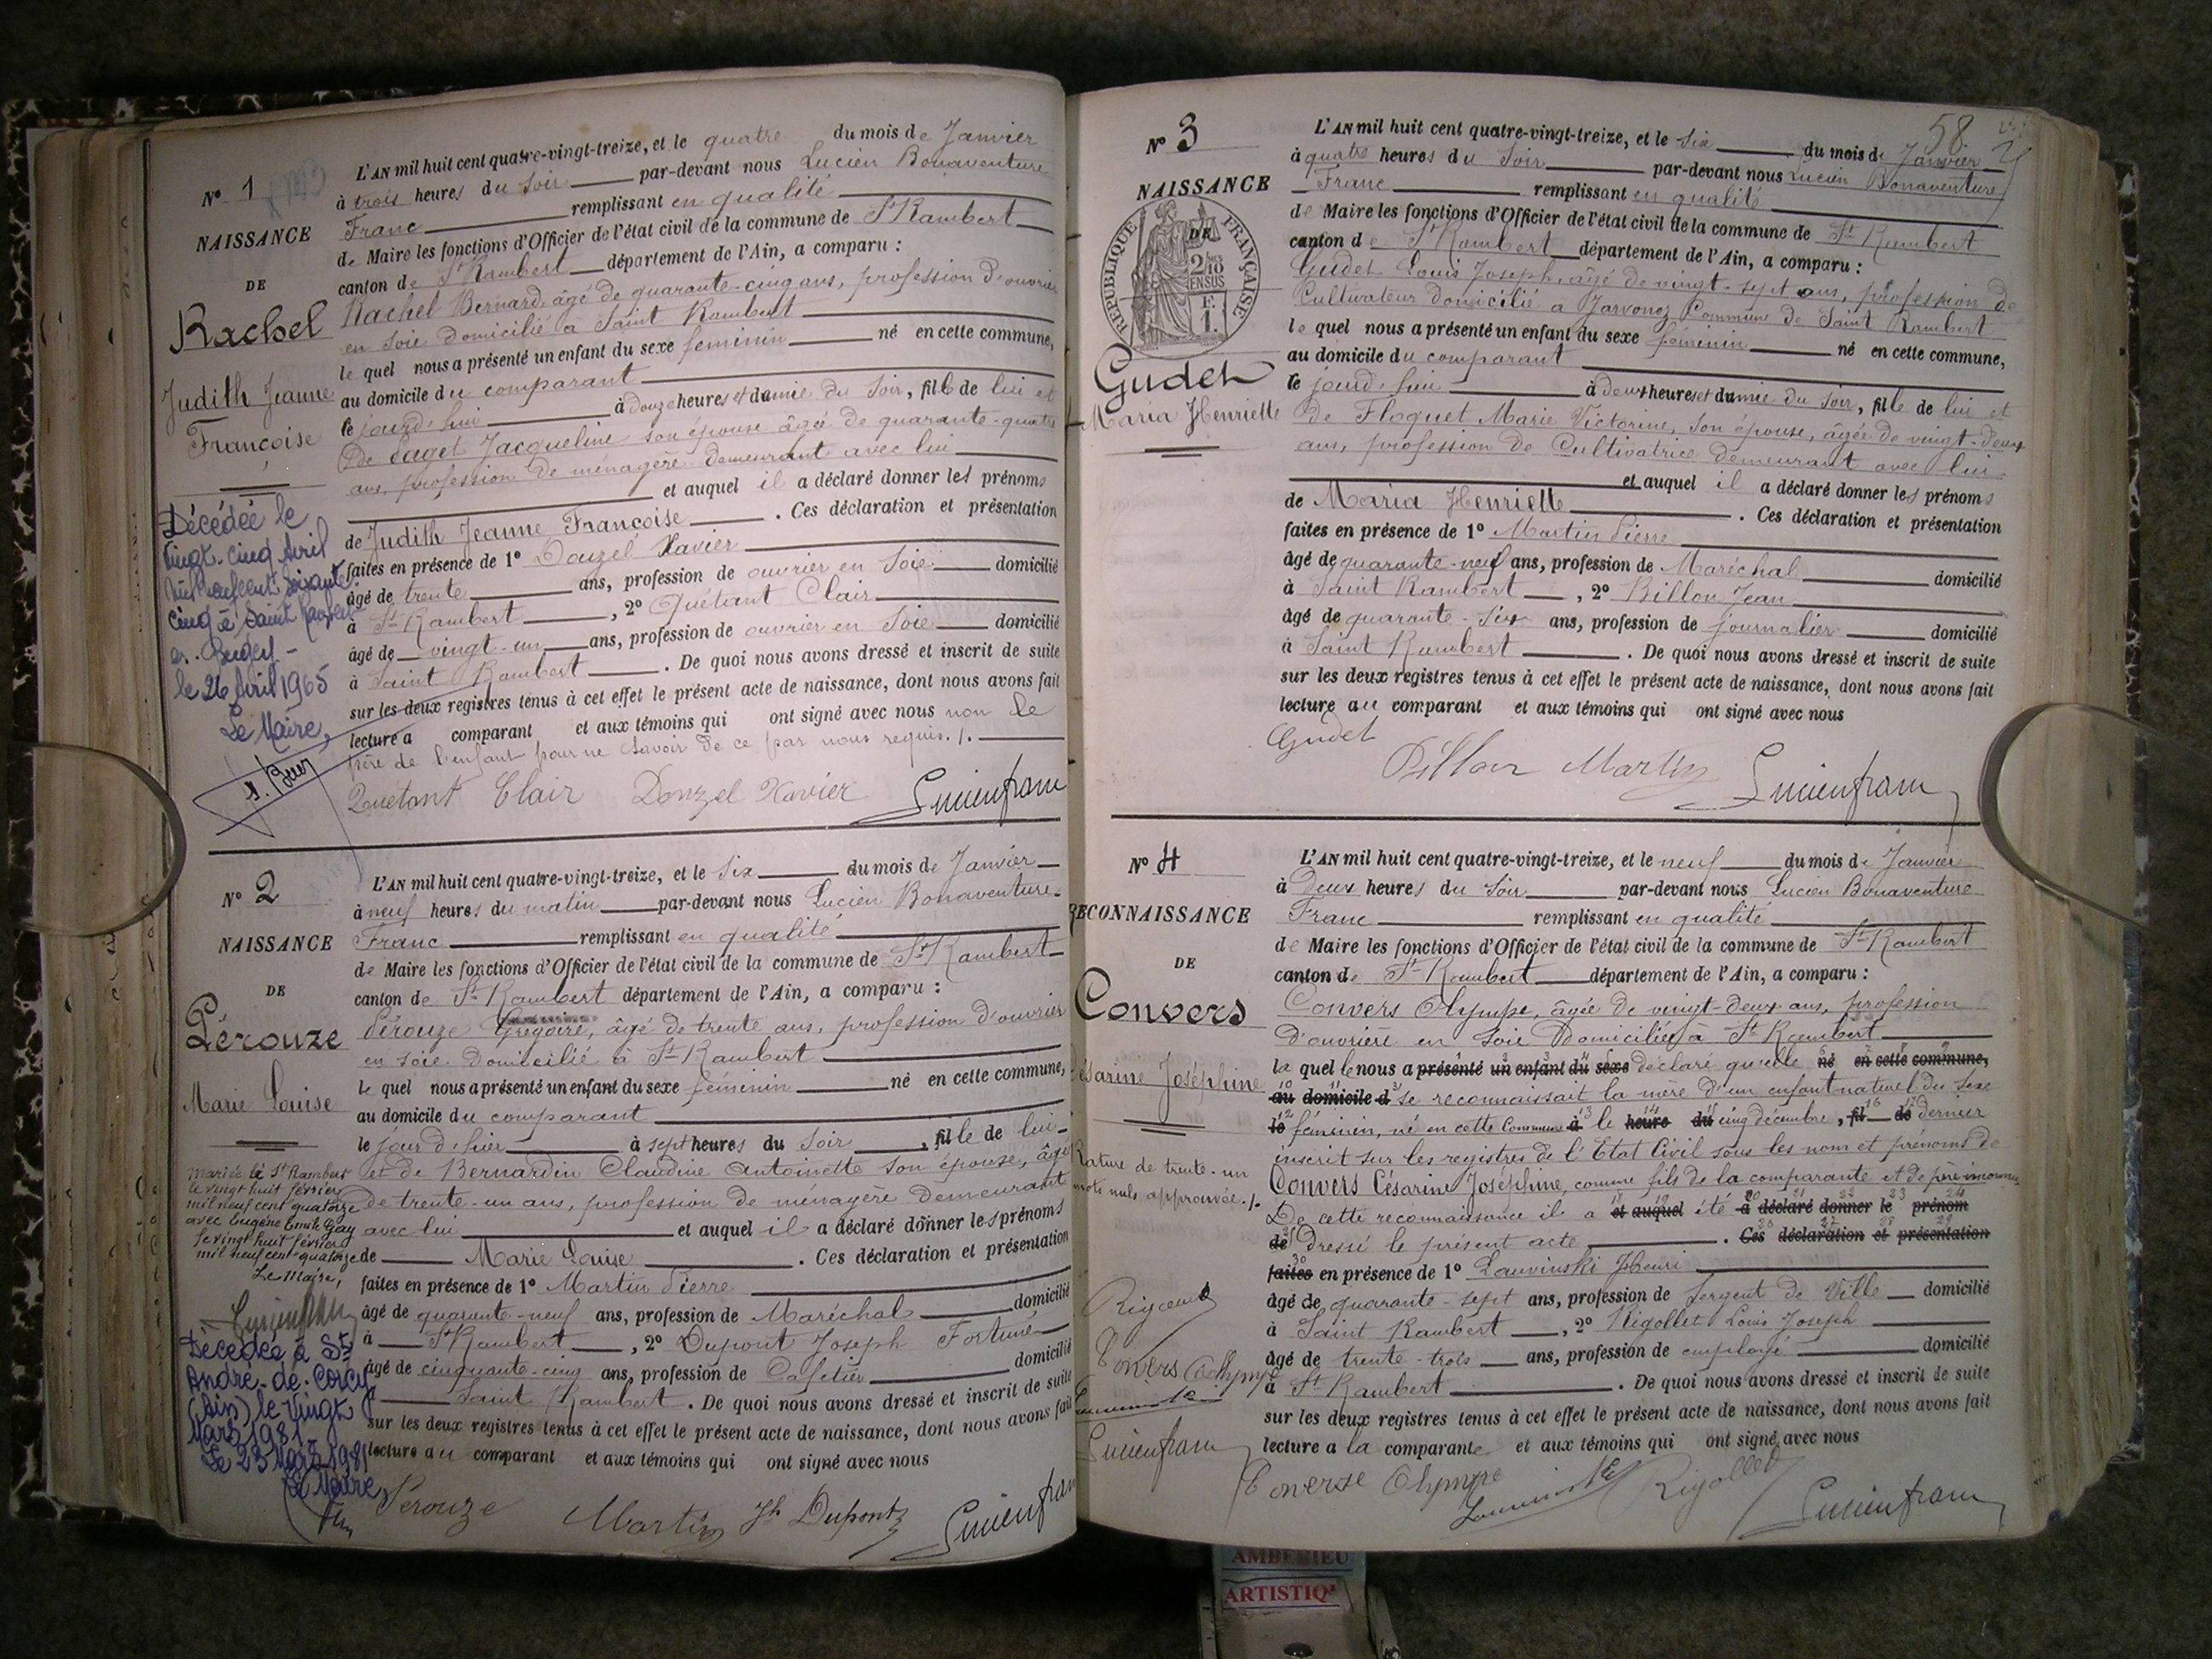 N° 1
NAISSANCE
DE
Rachel
Judith Jeanne
Françoise
Décédée le
vingt-cinq Avril
mil neuf cent soixante
cinq à Saint Rambert
en Bugey -
le 26 Avril 1965
Le Maire,
L'AN mil huit cent quatre-vingt-treize, et le quatre du mois de Janvier
à trois heures du soir par-devant nous Lucien Bonaventure
Franc remplissant en qualité
de Maire les fonctions d'Officier de l'état civil de la commune de St Rambert
canton de St Rambert département de l'Ain, a comparu :
Rachel Bernard, âgé de quarante-cinq ans, profession d'ouvrier
en soie domicilié à Saint Rambert
le quel nous a présenté un enfant du sexe féminin né en cette commune,
au domicile du comparant
le jourd'hui à douze heures et demie du soir, fille de lui et
de Saget Jacqueline son épouse âgée de quarante-quatre
ans, profession de ménagère demeurant avec lui
et auquel il a déclaré donner les prénoms
de Judith Jeanne Françoise . Ces déclaration et présentation
faites en présence de 1° Douzel Xavier
âgé de trente ans, profession de ouvrier en soie domicilié
à St Rambert , 2° Quétant Clair
âgé de vingt-un ans, profession de ouvrier en soie domicilié
à Saint Rambert . De quoi nous avons dressé et inscrit de suite
sur les deux registres tenus à cet effet le présent acte de naissance, dont nous avons fait
lecture a comparant et aux témoins qui ont signé avec nous non le
père de l'enfant pour ne savoir de ce par nous requis ./.
Quetant Clair Donzel Xavier Lucien franc
N° 2
NAISSANCE
DE
Pérouze
Marie Louise
Mariée à St Rambert
le vingt huit février
mil neuf cent quatorze
avec Eugène Emile Gay
le vingt huit février
mil neuf cent quatorze
Le Maire,
Lucien franc
Décédée à St
André-de-Corcy
(Ain) le vingt
Mars 1981
Le 23 Mars 1981
Le Maire,
L'AN mil huit cent quatre-vingt-treize, et le six du mois de Janvier
à neuf heures du matin par-devant nous Lucien Bonaventure
Franc remplissant en qualité
de Maire les fonctions d'Officier de l'état civil de la commune de St Rambert
canton de St Rambert département de l'Ain, a comparu :
Pérouze Grégoire, âgé de trente ans, profession d'ouvrier
en soie domicilié à St Rambert
le quel nous a présenté un enfant du sexe féminin né en cette commune,
au domicile du comparant
le jour d'hier à sept heures du soir , fille de lui
et de Bernardin Claudine Antoinette son épouse, âgée
de trente-un ans, profession de ménagère demeurant
avec lui et auquel il a déclaré donner les prénoms
de Marie Louise . Ces déclaration et présentation
faites en présence de 1° Martin Pierre
âgé de quarante-neuf ans, profession de Maréchal domicilié
à St Rambert , 2° Dupont Joseph Fortuné
âgé de cinquante-cinq ans, profession de Cafetier domicilié
à Saint Rambert . De quoi nous avons dressé et inscrit de suite
sur les deux registres tenus à cet effet le présent acte de naissance, dont nous avons fait
lecture au comparant et aux témoins qui ont signé avec nous
Pérouze Martin Jh Dupont Lucien franc
58
N° 3
NAISSANCE
DE
RÉPUBLIQUE FRANÇAISE
2/10 EN SUS
F.
1.
Gudet
Maria Henriette
L'AN mil huit cent quatre-vingt-treize, et le six du mois de Janvier
à quatre heures du soir par-devant nous Lucien Bonaventure
Franc remplissant en qualité
de Maire les fonctions d'Officier de l'état civil de la commune de St Rambert
canton de St Rambert département de l'Ain, a comparu :
Gudet Louis Joseph, âgé de vingt-sept ans, profession de
Cultivateur domicilié à Javonoz Commune de Saint Rambert
le quel nous a présenté un enfant du sexe féminin né en cette commune,
au domicile du comparant
le jourd'hui à deux heures et demie du soir, fille de lui et
de Floquet Marie Victorine, son épouse, âgée de vingt-deux
ans, profession de Cultivatrice demeurant avec lui
et auquel il a déclaré donner les prénoms
de Maria Henriette . Ces déclaration et présentation
faites en présence de 1° Martin Pierre
âgé de quarante-neuf ans, profession de Maréchal domicilié
à Saint Rambert , 2° Billon Jean
âgé de quarante-six ans, profession de journalier domicilié
à Saint Rambert . De quoi nous avons dressé et inscrit de suite
sur les deux registres tenus à cet effet le présent acte de naissance, dont nous avons fait
lecture au comparant et aux témoins qui ont signé avec nous
Gudet
Billon Martin Lucien franc
N° 4
RECONNAISSANCE
DE
Convers
Césarine Joséphine
Rature de trente-un
mots nuls approuvée ./.
Rigollet
Convers Olympe
Lucien franc
L'AN mil huit cent quatre-vingt-treize, et le neuf du mois de Janvier
à Deux heures du soir par-devant nous Lucien Bonaventure
Franc remplissant en qualité
de Maire les fonctions d'Officier de l'état civil de la commune de St Rambert
canton de St Rambert département de l'Ain, a comparu :
Convers Olympe, âgée de vingt-deux ans, profession
d'ouvrière en soie Domiciliée à St Rambert
la quel le nous a présenté un enfant du sexe déclaré qu'elle né en cette commune,
au domicile d se reconnaissait la mère d'un enfant naturel du sexe
le féminin, né en cette Commune à le heure du cinq décembre, fil de dernier
inscrit sur les registres de l'Etat Civil sous les nom et prénoms de
Convers Césarine Joséphine, comme fils de la comparante et de père inconnu
De cette reconnaissance il a et auquel été a déclaré donner le prénom
de Dressé le présent acte . Ces déclaration et présentation
faites en présence de 1° Lauvinski Henri
âgé de quarante-sept ans, profession de Sergent de Ville domicilié
à Saint Rambert , 2° Rigollet Louis Joseph
âgé de trente-trois ans, profession de employé domicilié
à St Rambert . De quoi nous avons dressé et inscrit de suite
sur les deux registres tenus à cet effet le présent acte de naissance, dont nous avons fait
lecture a la comparante et aux témoins qui ont signé avec nous
Converse Olympe Rigollet Lucien franc
AMBERIEU
ARTISTIQ